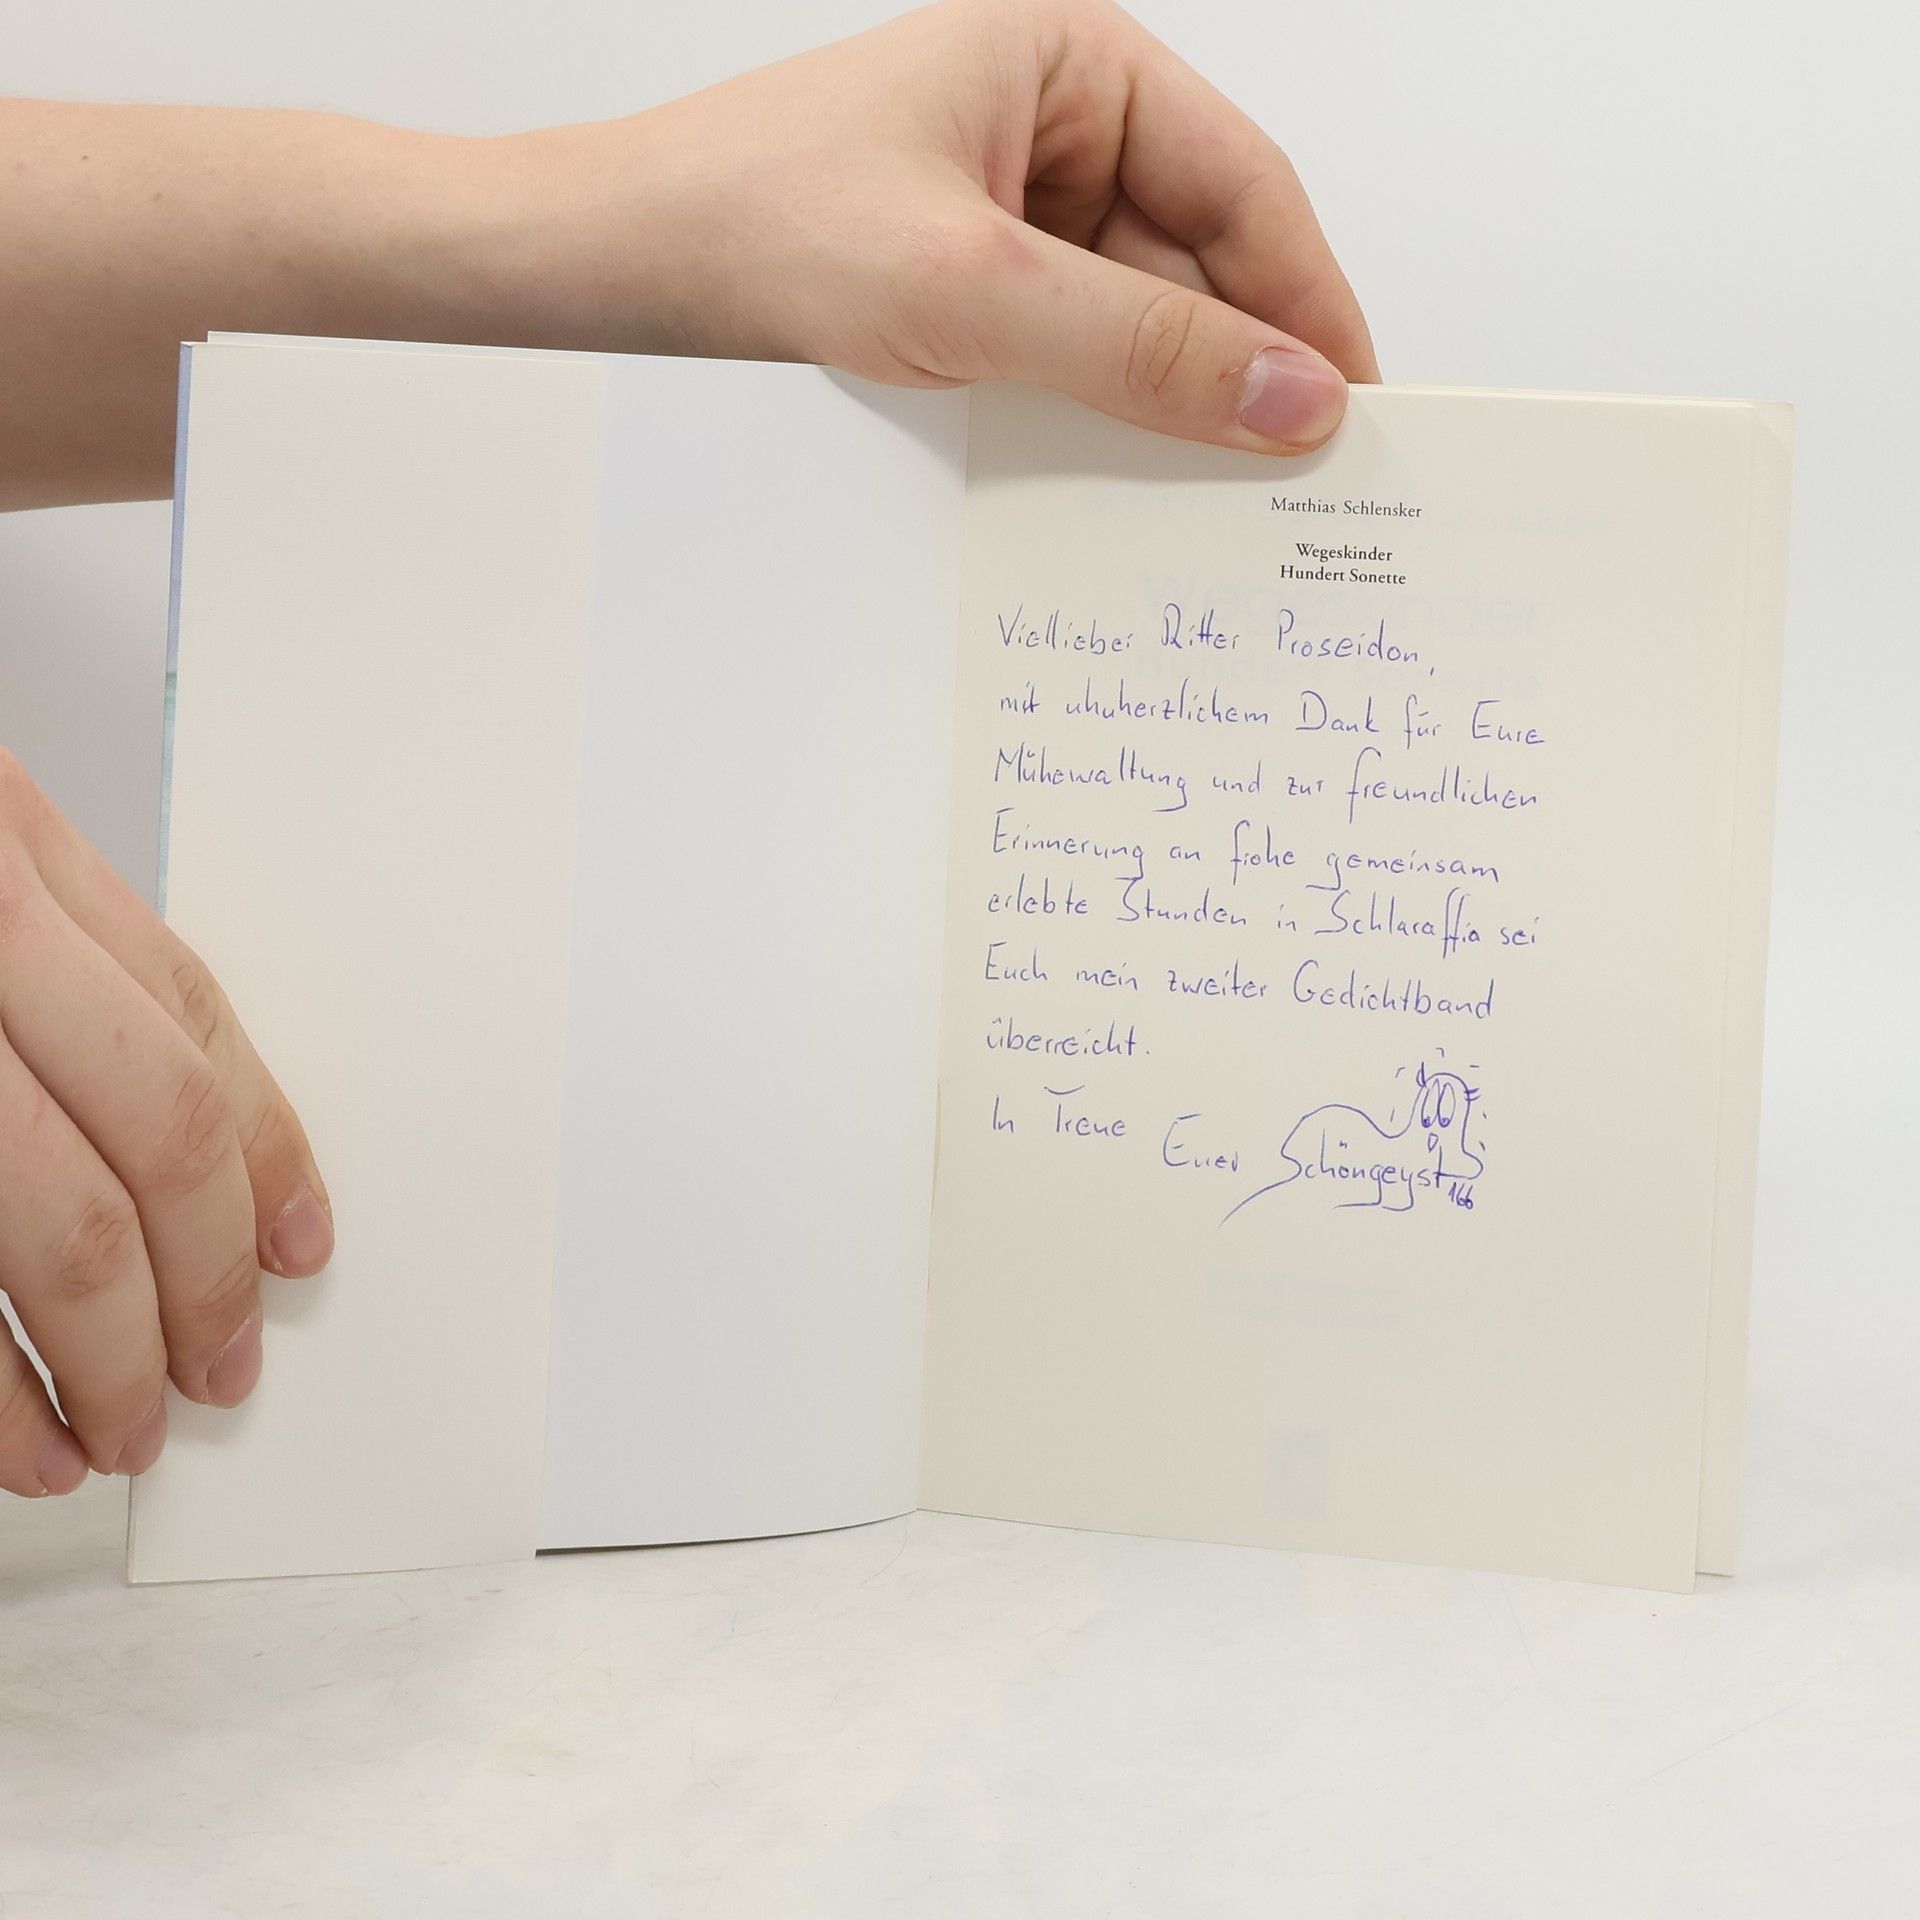 Matthias Schlensker
Wegeskinder
Hundert Sonette
Viellieber Ritter Proseidon,
mit uhuherzlichem Dank für Eure
Mühewaltung und zur freundlichen
Erinnerung an frohe gemeinsam
erlebte Stunden in Schlaraffia sei
Euch mein zweiter Gedichtband
überreicht.
In Treue
Euer Schöngeyst 166